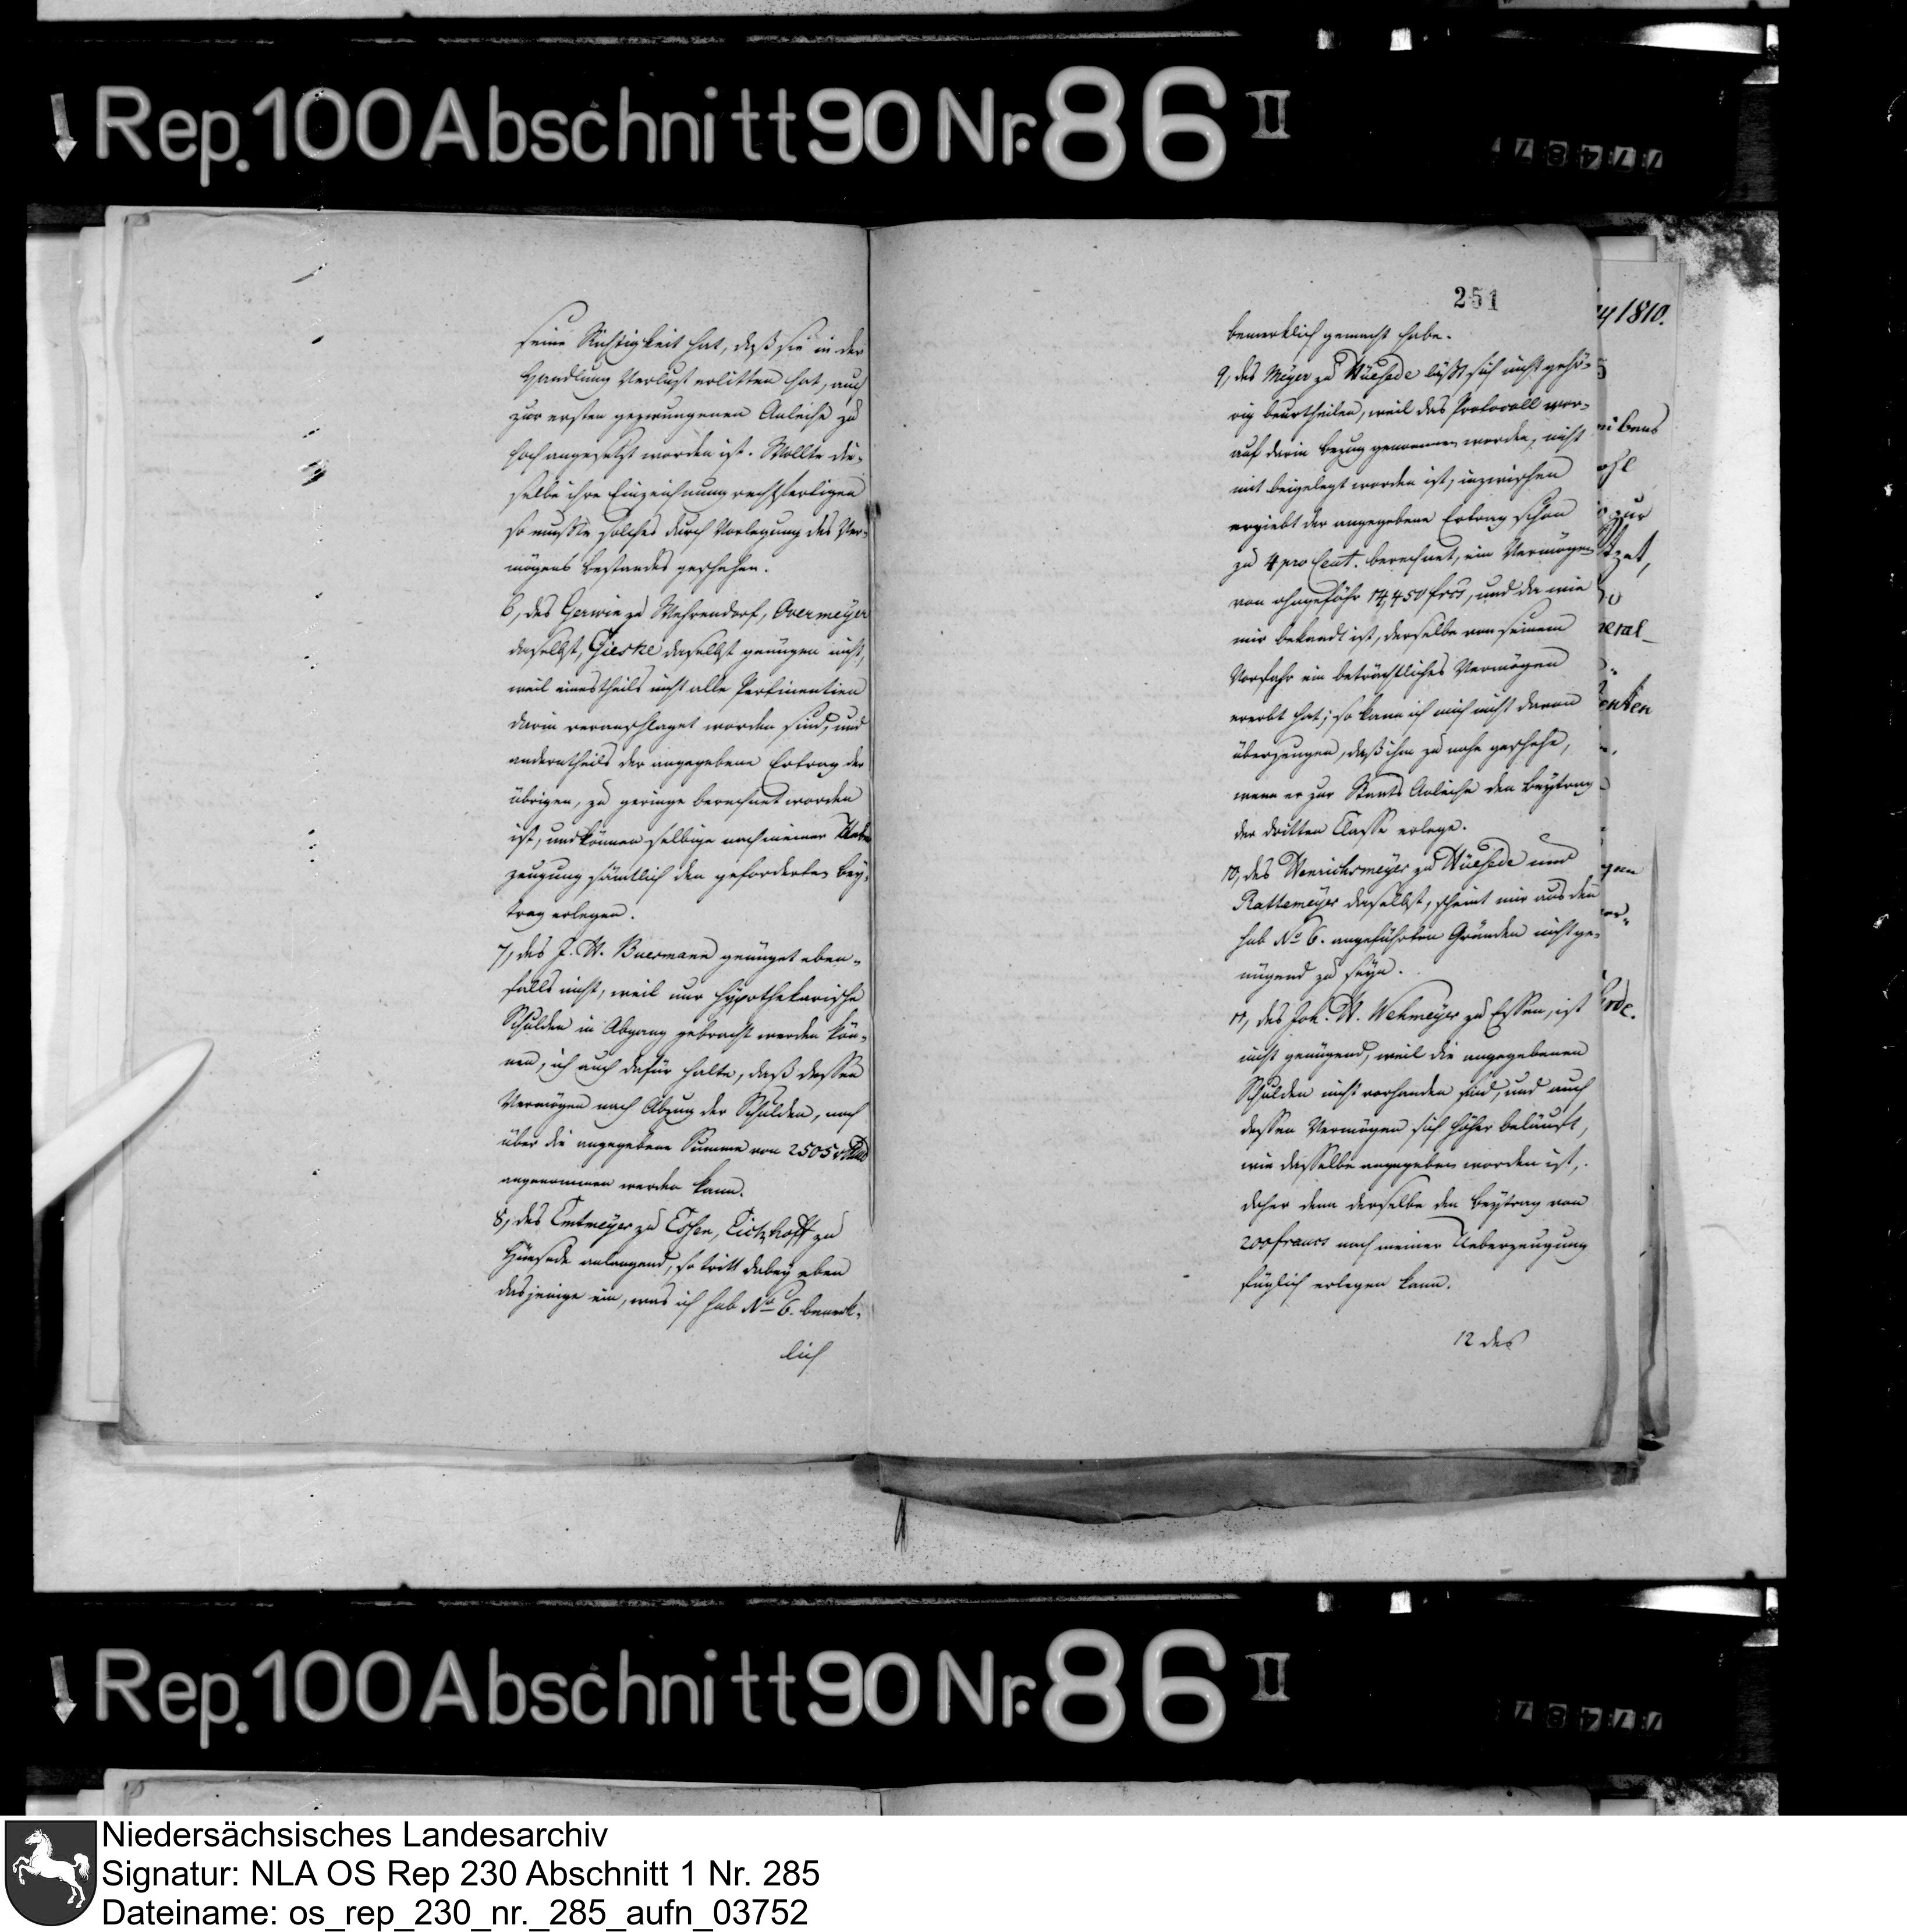 Rep. 100 Abschnitt 90 Nr. 86 II
77487
seine Richtigkeit hat, daß sie in der
Handlung Verlust erlitten hat, auch
zur ersten gezwungenen Anleihe zu
hoch angesetzt worden ist. Wollte die-
selbe ihre Einzeichnung rechtfertigen
so mußte solches durch Vorlegung des Ver-
mögens Bestandes geschehen.
6, des Gerwin zu Wehrendorf, Overmeyer
daselbst, Gieske daselbst genügen nicht,
weil einestheils nicht alle Pertinentien
darin veranschlaget worden sind, und
anderntheils der angegebene Ertrag der
übrigen, zu geringe berechnet worden
ist, und können selbige nach meiner Ueber
zeugung sämtlich den geforderten Bey-
trag erlegen.
7, des J. W. Buermann genüget eben-
falls nicht, weil nur hypothekarische
Schulden in Abgang gebracht werden kön-
nen, ich auch dafür halte, daß dessen
Vermögen nach Abzug der Schulden, noch
über die angegebene Summe von 2505
angenommen werden kann.
8, des Entmeyer zu Essen, Eickhoff zu
Hüsede anlangend, so tritt dabey eben
dasjenige ein, was ich sub No 6. bemerk-
lich
251
bemerklich gemacht habe.
9, des Meyer zu Hüesede läßt sich nicht gehö-
rig beurtheilen, weil das Protocoll wor-
auf darin Bezug genommen worden, nicht
mit beigelegt worden ist, inzwischen
ergiebt der angegebene Ertrag schon
zu 4 pro Cent. berechnet, ein Vermögen
von ohngefähr 14,450 frcs, und da wie
mir bekandt ist, derselbe von seinem
Vorfahr ein beträchtliches Vermögen
ererbt hat; so kann ich mich nicht davon
überzeugen, daß ihm zu nahe geschehe,
wenn er zur Staats Anleihe den Beytrag
der dritten Classe erlege.
10, des Wenrichsmeyer zu Hüesede und
Rattemeyer daselbst, scheint mir aus den
sub No 6. angeführten Gründen nicht ge-
nügend zu seyn.
11, des Joh. W. Wehmeyer zu Essen, ist
nicht genügend, weil die angegebenen
Schulden nicht vorhanden sind, und auch
dessen Vermögen sich höher beläuft,
wie dasselbe angegeben worden ist,
daher denn derselbe den Beytrag von
200 francs nach meiner Ueberzeugung
füglich erlegen kann.
12 des
1810.
Rep. 100 Abschnitt 90 Nr. 86 II
77487
Niedersächsisches Landesarchiv
Signatur: NLA OS Rep 230 Abschnitt 1 Nr. 285
Dateiname: os_rep_230_nr._285_aufn_03752